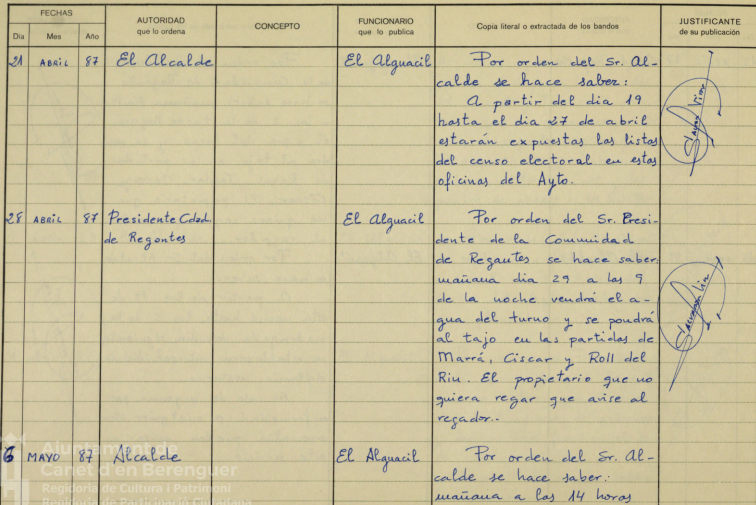 FECHAS
Día Mes Año
AUTORIDAD
que lo ordena
CONCEPTO
FUNCIONARIO
que lo publica
Copia literal o extractada de los bandos
JUSTIFICANTE
de su publicación
21 ABRIL 87 El Alcalde El Alguacil Por orden del Sr. Al-
calde se hace saber:
A partir del dia 19
hasta el dia 27 de abril
estarán expuestas las listas
del censo electoral en estas
oficinas del Ayto.
28 ABRIL 87 Presidente Cdad. El Alguacil Por orden del Sr. Presi-
de Regantes dente de la Comunidad
de Regantes se hace saber:
mañana dia 29 a las 9
de la noche vendrá el a-
gua del turno y se pondrá
al tajo en las partidas de
Marrá, Ciscar y Roll del
Riu. El propietario que no
quiera regar que avise al
regador..
6 MAYO 87 Alcalde El Alguacil Por orden del Sr. Al-
calde se hace saber:
mañana a las 14 horas
Ajuntament de
Canet d'en Berenguer
Regidoria de Cultura i Patrimoni
Regidoria de Participació Ciutadana